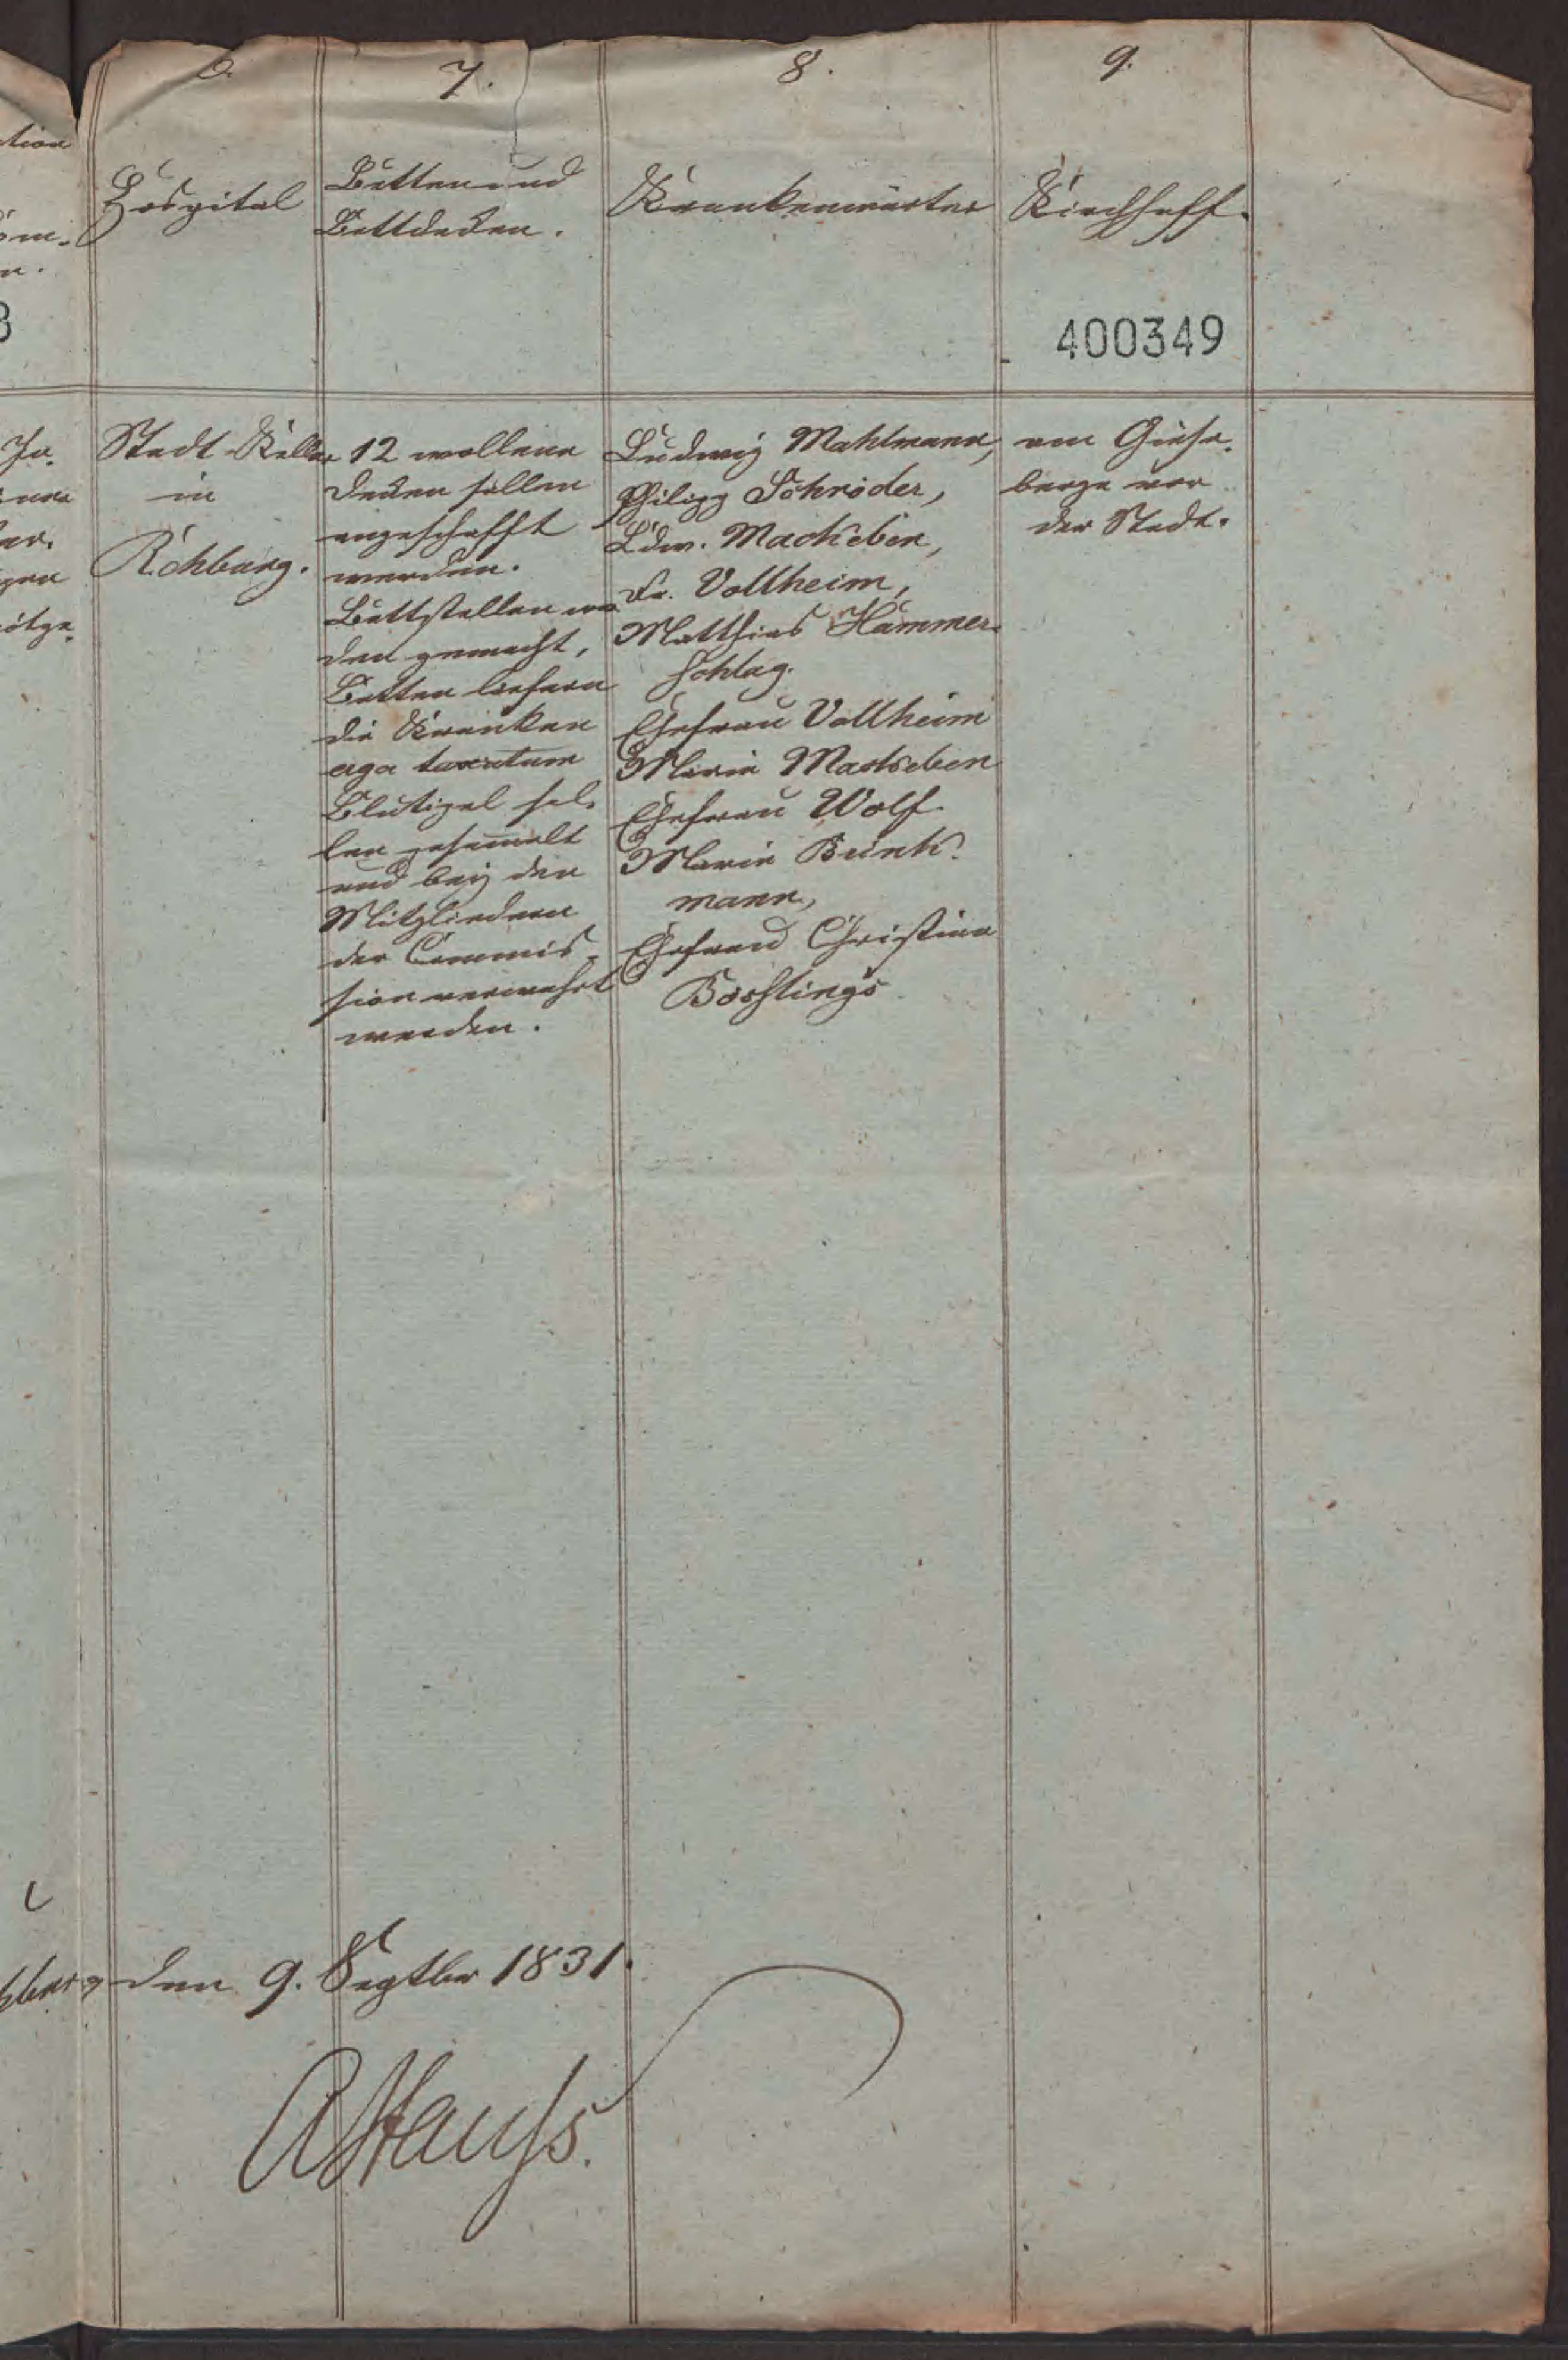 6.
7.
8.
9.
Hospital
Betten und
Bettdecken.
Krankenwärter
Kirchhoff.
400349
Stadt-Keller
in
Rehburg.
12 wollene
Decken sollen
angeschafft
werden.
Bettstellen wer
den gemacht,
Betten liefern
die Kranken
erga taxatum
Blutigel sol-
len gesam̄elt
und bey den
Mitgliedern
der Commis-
sion verwahrt
werden.
Ludwig Mahlmann,
Philipp Schröder,
Ldw. Mackeben,
Fr. Vollheim,
Matthias Hammer-
schlag.
Ehefrau Vollheim
Marie Mackeben
Ehefrau Wolf.
Marie Brink-
mann,
Ehefrau Christine
am Giese-
berge vor
der Stadt.
den 9. Septbr 1831.